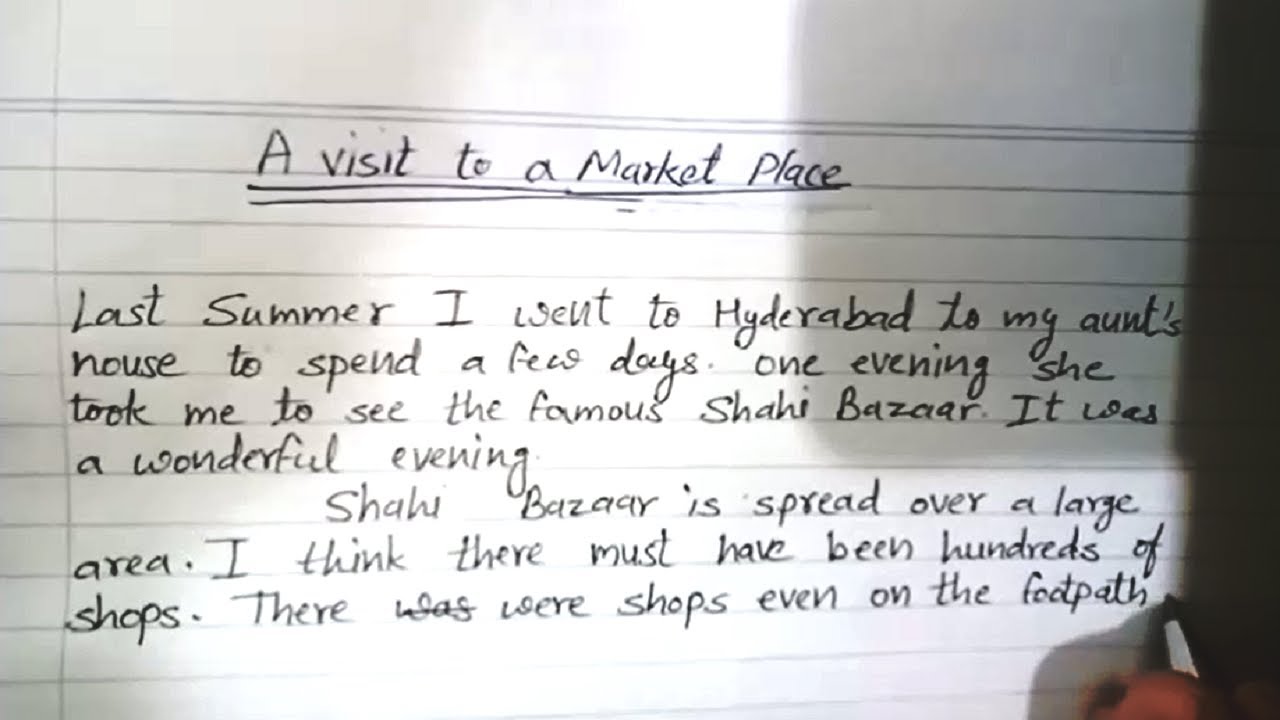 A visit to a Market Place
Last Summer I went to Hyderabad to my aunt's
house to spend a few days. one evening she
took me to see the famous Shahi Bazaar. It was
a wonderful evening.
Shahi Bazaar is spread over a large
area. I think there must have been hundreds of
shops. There was were shops even on the footpath